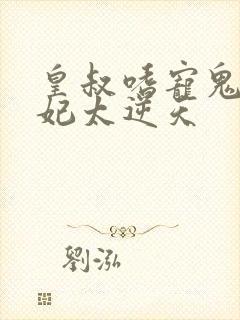 皇叔嗜寵鬼
妃太逆天
劉泓